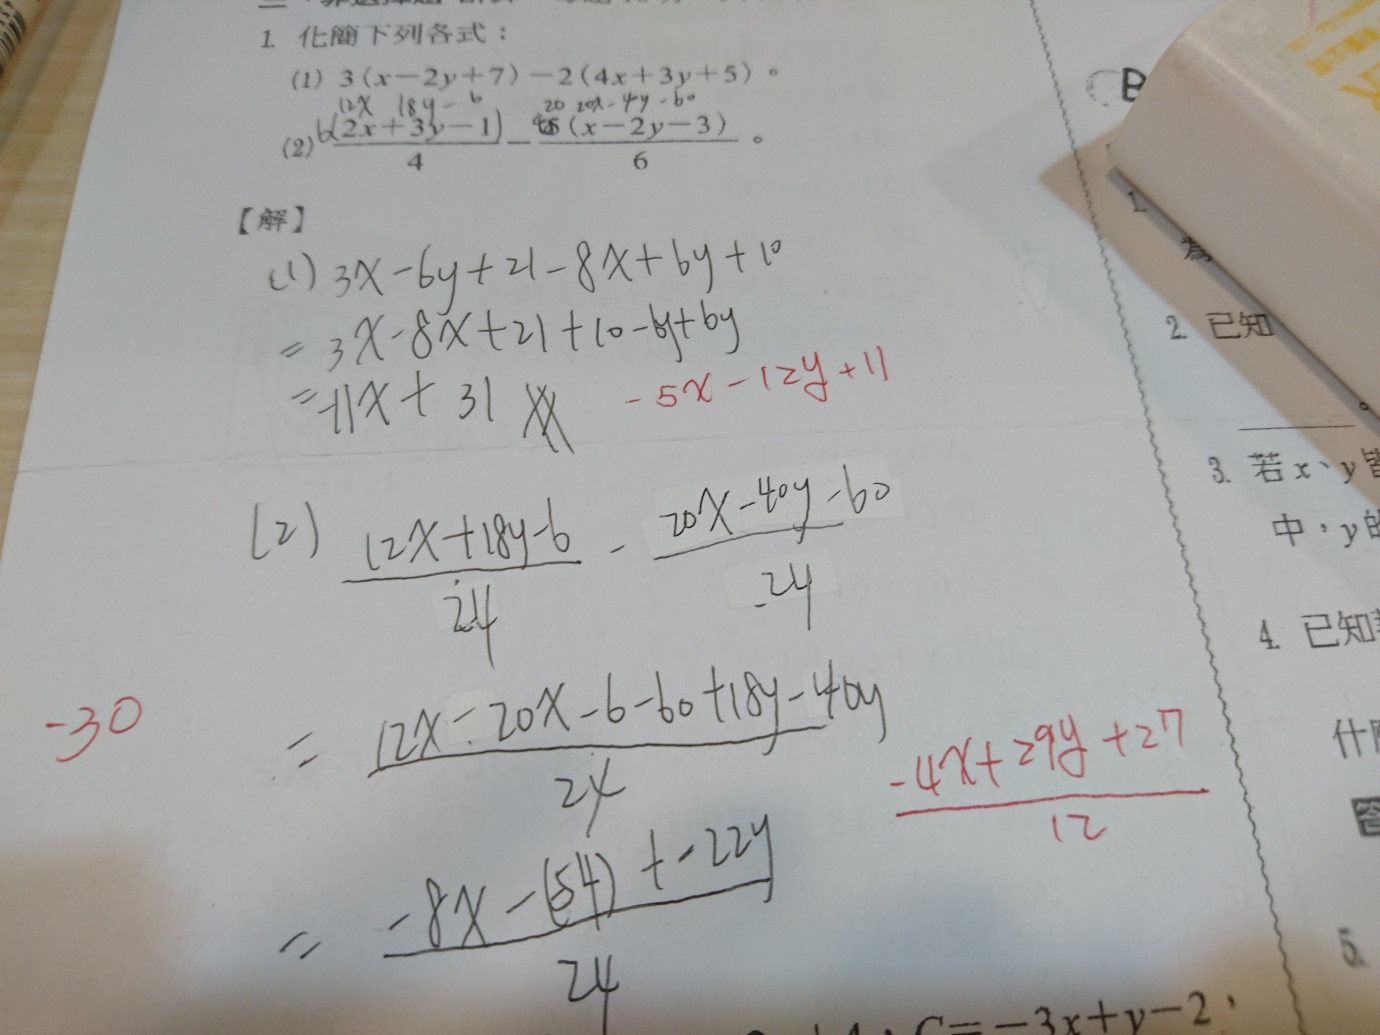 1. 化簡下列各式：
(1) 3(x－2y＋7)－2(4x＋3y＋5)。
12x 18y - 6 20 20x - 4y - 60
(2) 6(2x＋3y－1)/4 － 5(x－2y－3)/6 。
【解】
(1) 3x - 6y + 21 - 8x + 6y + 10
= 3x - 8x + 21 + 10 - 6y + 6y
= -11x + 31
-5x - 12y + 11
(2) 12x + 18y - 6 / 24 - 20x - 40y - 60 / 24
= 12x - 20x - 6 - 60 + 18y - 40y / 24
-30
-4x + 29y + 27 / 12
= -8x - (54) + -22y / 24
B
1.
2. 已知
。
3. 若 x、y
中，y的
4. 已知
什
答
5.
C＝－3x＋y－2，